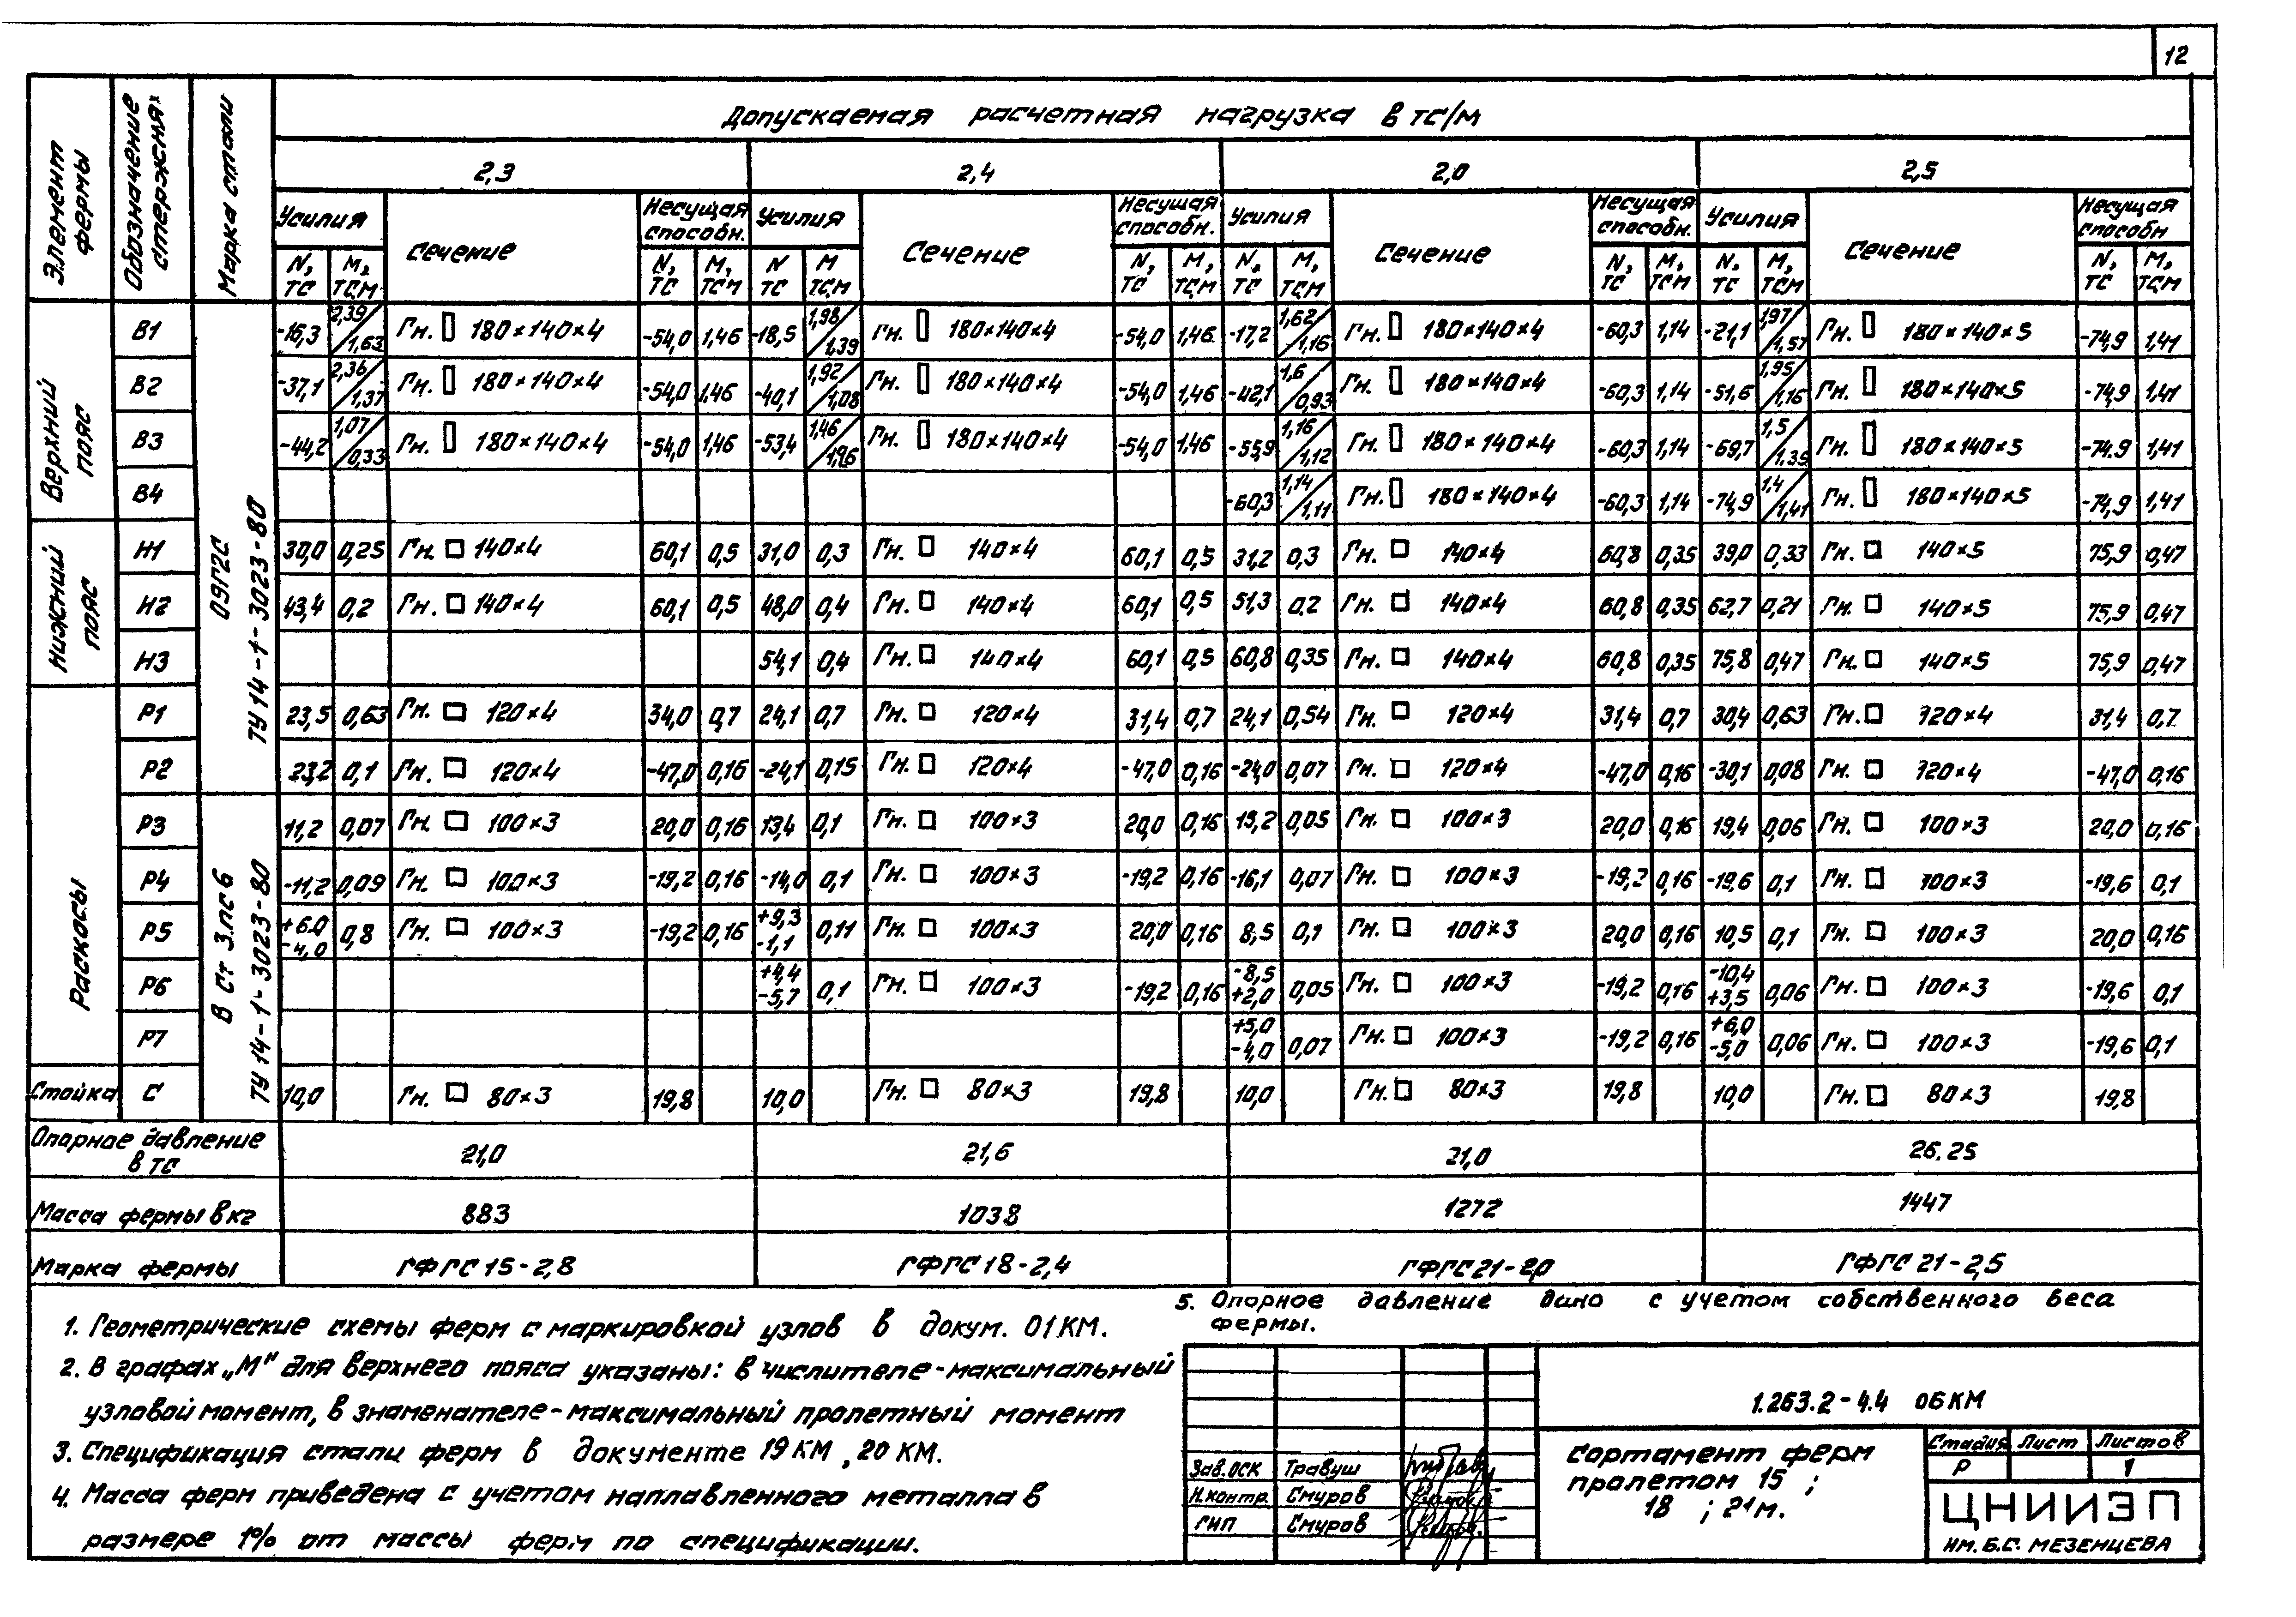 12
Элемент фермы
Обозначение стержня
Марка стали
Допускаемая расчетная нагрузка в тс/м
2,3 2,4 2,0 2,5
Усилия Сечение Несущая способн. Усилия Сечение Несущая способн. Усилия Сечение Несущая способн. Усилия Сечение Несущая способн
N, тс М, тсм N, тс М, тсм N тс М тсм N, тс М, тсм N, тс М, тсм N, тс М, тсм N, тс М, тсм N, тс М, тсм
Верхний пояс
09Г2С ТУ 14-1-3023-80
В1 -16,3 2,39/1,63 Гн. 180×140×4 -54,0 1,46 -18,5 1,98/1,39 Гн. 180×140×4 -54,0 1,46 -17,2 1,62/1,16 Гн. 180×140×4 -60,3 1,14 -21,1 1,97/1,57 Гн. 180×140×5 -74,9 1,41
В2 -37,1 2,36/1,37 Гн. 180×140×4 -54,0 1,46 -40,1 1,92/1,08 Гн. 180×140×4 -54,0 1,46 -42,1 1,6/0,93 Гн. 180×140×4 -60,3 1,14 -51,6 1,95/1,16 Гн. 180×140×5 -74,9 1,41
В3 -44,2 1,07/0,33 Гн. 180×140×4 -54,0 1,46 -53,4 1,46/ Гн. 180×140×4 -54,0 1,46 -55,9 1,16/1,12 Гн. 180×140×4 -60,3 1,14 -69,7 1,5/1,35 Гн. 180×140×5 -74,9 1,41
В4 -60,3 1,14/1,11 Гн. 180×140×4 -60,3 1,14 -74,9 1,4/1,41 Гн. 180×140×5 -74,9 1,41
Нижний пояс
Н1 30,0 0,25 Гн. 140×4 60,1 0,5 31,0 0,3 Гн. 140×4 60,1 0,5 31,2 0,3 Гн. 140×4 60,8 0,35 39,0 0,33 Гн. 140×5 75,9 0,47
Н2 43,4 0,2 Гн. 140×4 60,1 0,5 48,0 0,4 Гн. 140×4 60,1 0,5 51,3 0,2 Гн. 140×4 60,8 0,35 63,7 0,21 Гн. 140×5 75,9 0,47
Н3 54,1 0,4 Гн. 140×4 60,1 0,5 60,8 0,35 Гн. 140×4 60,8 0,35 75,8 0,47 Гн. 140×5 75,9 0,47
Раскосы
Р1 23,5 0,63 Гн. 120×4 34,0 0,7 24,1 0,7 Гн. 120×4 31,4 0,7 24,1 0,54 Гн. 120×4 31,4 0,7 30,4 0,63 Гн. 120×4 31,4 0,7
Р2 23,2 0,1 Гн. 120×4 -47,0 0,16 -24,1 0,15 Гн. 120×4 -47,0 0,16 -24,0 0,07 Гн. 120×4 -47,0 0,16 -30,1 0,08 Гн. 120×4 -47,0 0,16
В Ст 3.пс 6 ТУ 14-1-3023-80
Р3 11,2 0,07 Гн. 100×3 20,0 0,16 13,4 0,1 Гн. 100×3 20,0 0,16 15,2 0,05 Гн. 100×3 20,0 0,16 19,4 0,06 Гн. 100×3 20,0 0,16
Р4 -11,2 0,09 Гн. 100×3 -19,2 0,16 -14,0 0,1 Гн. 100×3 -19,2 0,16 -16,1 0,07 Гн. 100×3 -19,2 0,16 -19,6 0,1 Гн. 100×3 -19,6 0,1
Р5 +6.0 -4,0 0,8 Гн. 100×3 -19,2 0,16 +9,3 -1,1 0,11 Гн. 100×3 20,0 0,16 8,5 0,1 Гн. 100×3 20,0 0,16 10,5 0,1 Гн. 100×3 20,0 0,16
Р6 +4,4 -5,7 0,1 Гн. 100×3 -19,2 0,16 -8,5 +2,0 0,05 Гн. 100×3 -19,2 0,16 -10,4 +3,5 0,06 Гн. 100×3 -19,6 0,1
Р7 +5,0 -4,0 0,07 Гн. 100×3 -19,2 0,16 +6,0 -5,0 0,06 Гн. 100×3 -19,6 0,1
Стойка С 10,0 Гн. 80×3 19,8 10,0 Гн. 80×3 19,8 10,0 Гн. 80×3 19,8 10,0 Гн. 80×3 19,8
Опорное давление в тс 21,0 21,6 21,0 26.25
Масса фермы в кг 883 1038 1272 1447
Марка фермы ГФГС 15-2,8 ГФГС 18-2,4 ГФГС 21-2,0 ГФГС 21-2,5
1. Геометрические схемы ферм с маркировкой узлов в докум. 01 КМ.
2. В графах „М" для верхнего пояса указаны: в числителе-максимальный
узловой момент, в знаменателе-максимальный пролетный момент
3. Спецификация стали ферм в документе 19 КМ, 20 КМ.
4. Масса ферм приведена с учетом наплавленного металла в
размере 1% от массы ферм по спецификации.
5. Опорное давление дано с учетом собственного веса
фермы.
1.263.2-4.4 06 КМ
Зав.ОСК Травуш
Н.контр. Смуров
ГИП Смуров
Сортамент ферм
пролетом 15 ;
18 ; 21 м.
Стадия Лист Листов
Р 1
ЦНИИЭП
им. Б.С. МЕЗЕНЦЕВА